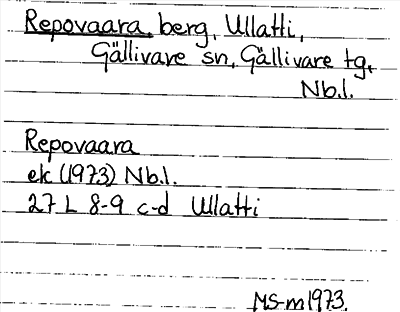 Repovaara, berg, Ullatti,
Gällivare sn, Gällivare tg,
Nb.l.
Repovaara
ek (1973) Nb.l.
27 L 8-9 c-d Ullatti
MS-m 1973.